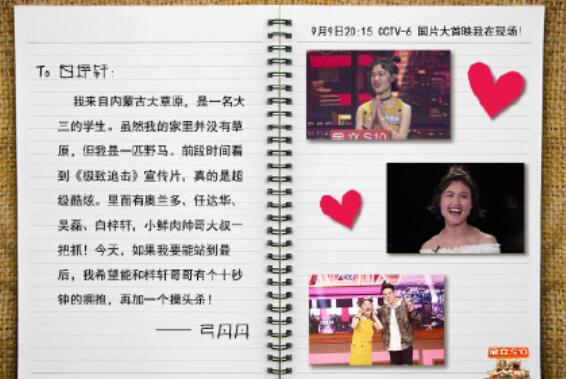 To 白梓轩：
我来自内蒙古大草原，是一名大
三的学生。虽然我的家里并没有草
原，但我是一匹野马。前段时间看
到《极致追击》宣传片，真的是超
级酷炫。里面有奥兰多、任达华、
吴磊、白梓轩，小鲜肉帅哥大叔一
把抓！今天，如果我要能站到最
后，我希望能和梓轩哥哥有个十秒
钟的拥抱，再加一个摸头杀！
—— 弓丹丹
9月9日20:15 CCTV-6 国片大首映我在现场！
金立S10
金立S10